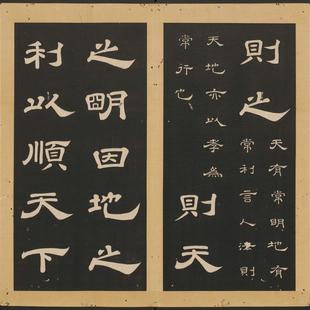 則之
天有常明地有
常利言人法則
天地亦以孝為
常行也
則天
之明因地之
利以順天下